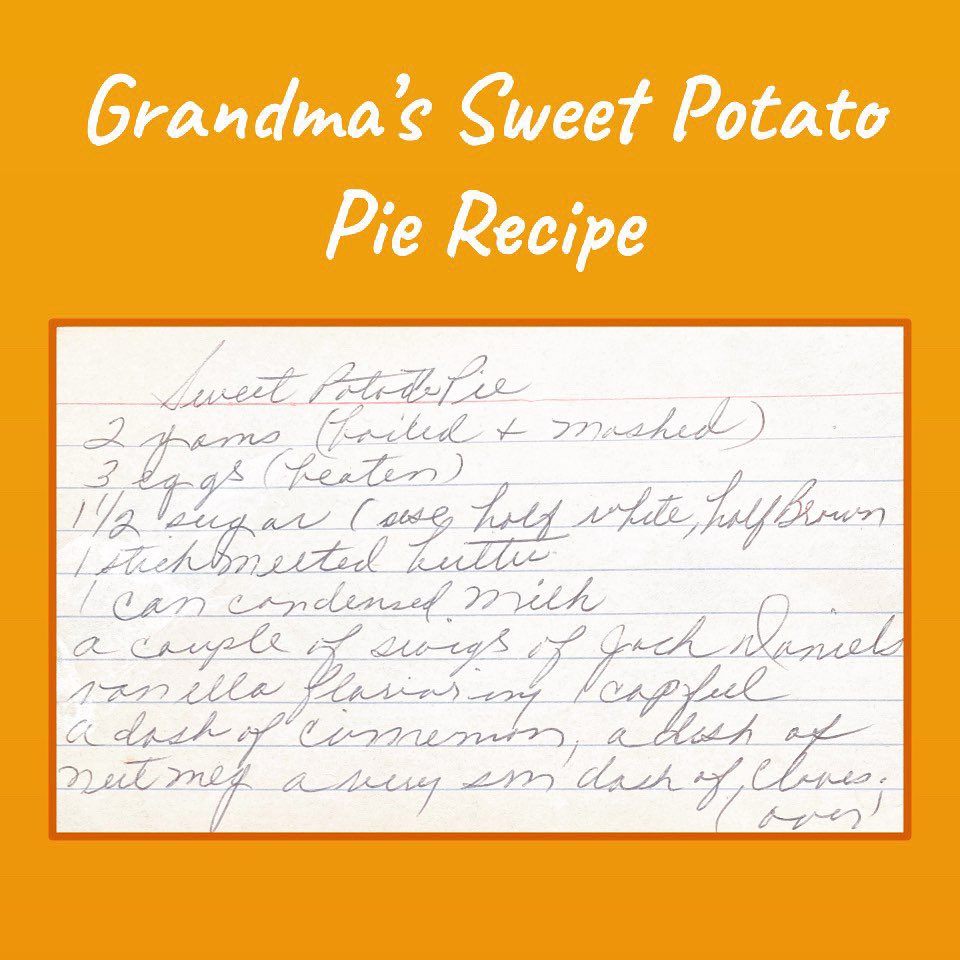 Grandma's Sweet Potato
Pie Recipe
Sweet Potatoe Pie
2 yams (boiled + mashed)
3 eggs (beaten)
1 1/2 sugar (use half white, half Brown
1 stick melted butter
1 can condensed milk
a couple of swigs of Jack Daniels
vanilla flavoring 1 capful
a dash of cinnemon, a dash of
nutmeg a very sm dash of cloves.
(over)